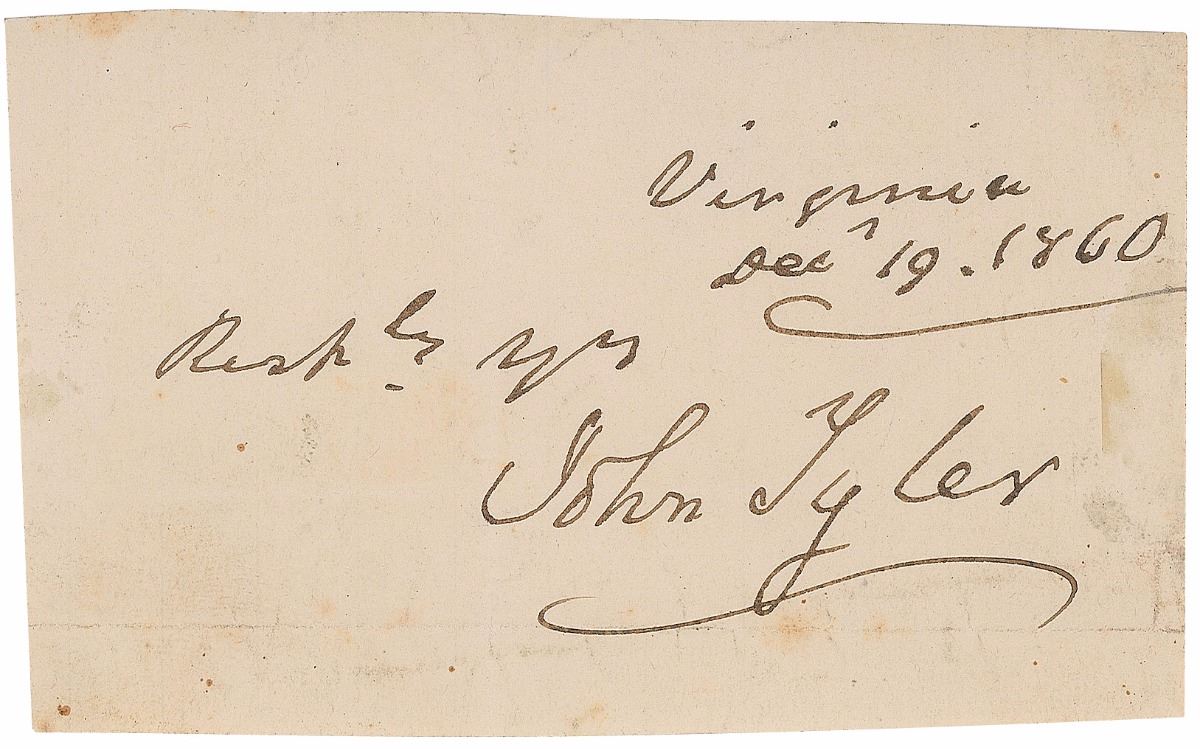 Virginia
Decr 19. 1860
Resply yrs
John Tyler